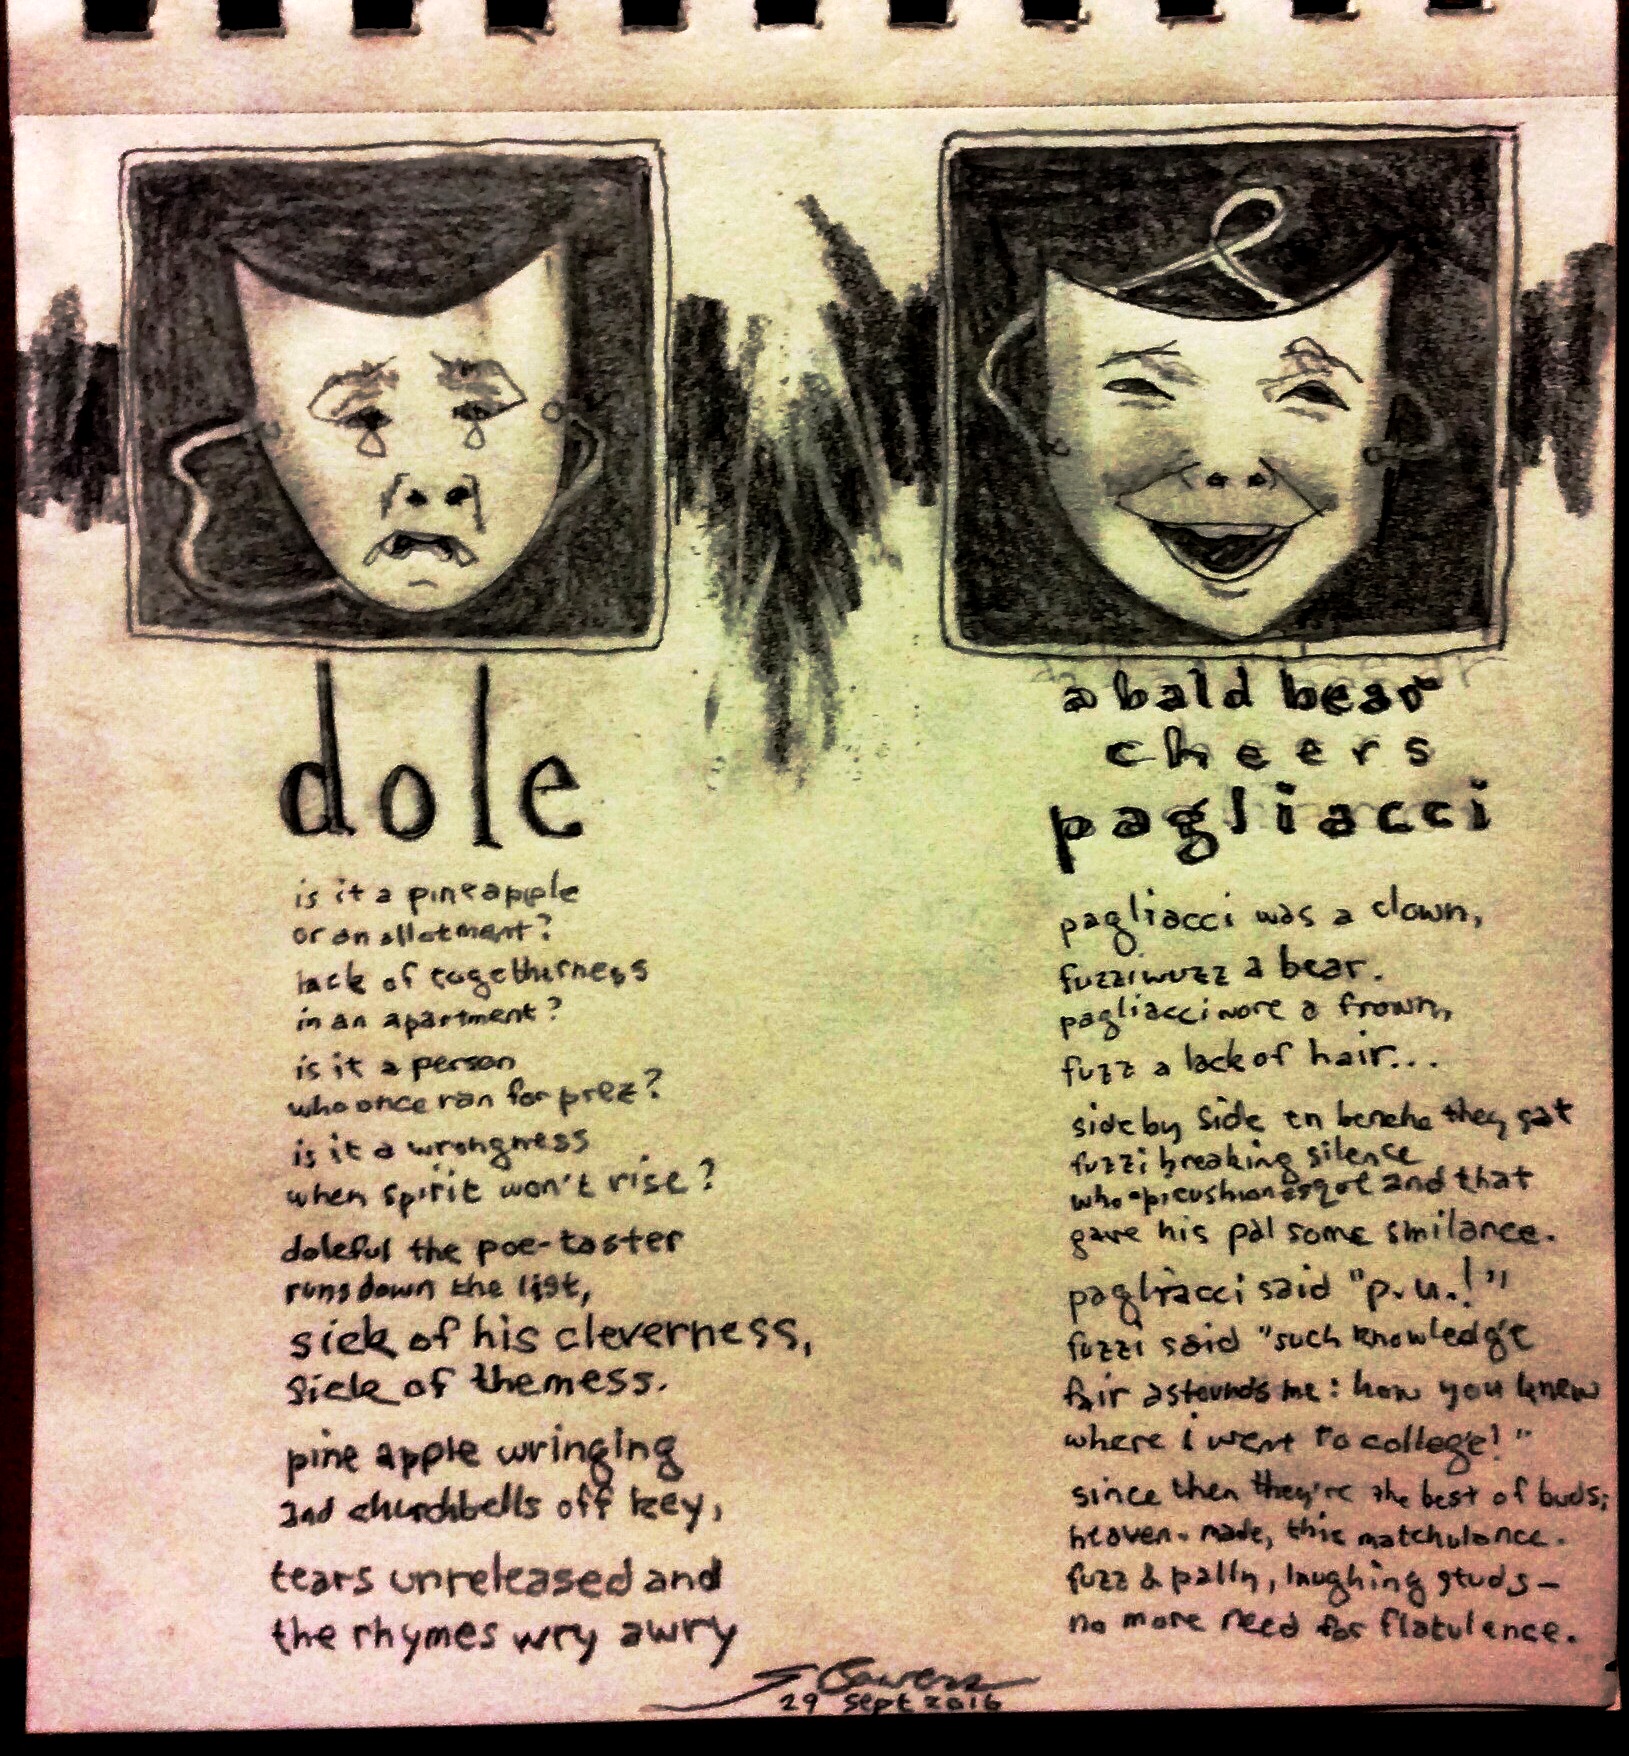 dole
is it a pineapple
or an allotment?
lack of togetherness
in an apartment?
is it a person
who once ran for prez?
is it a wrongness
when spirit won't rise?
doleful the poe-taster
runs down the list,
sick of his cleverness,
sick of themess.
pine apple wringing
and churchbells off key,
tears unreleased and
the rhymes wry awry
a bald bear
cheers
pagliacci
pagliacci was a clown,
fuzziwuzz a bear.
pagliacci wore a frown,
fuzz a lack of hair...
side by side en benche they sat
fuzzi breaking silence
and that
gave his pal some smilance.
pagliacci said "p.u.!"
fuzzi said "such knowledge
fair astounds me: how you knew
where i went to college!"
since then they're the best of buds;
heaven-made, this matchulance.
fuzz & pally, laughing studs-
no more need for flatulence.
29 sept 2016